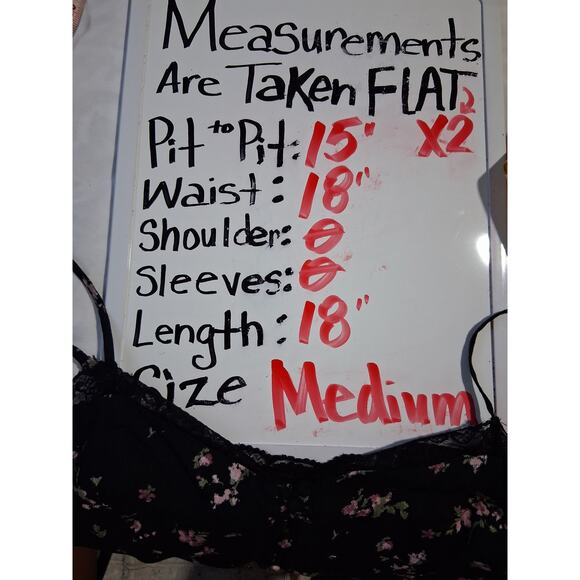 Measurements
Are Taken FLAT
Pit to Pit: 15" X2
Waist: 18"
Shoulder: 0
Sleeves: 0
Length: 18"
Size Medium